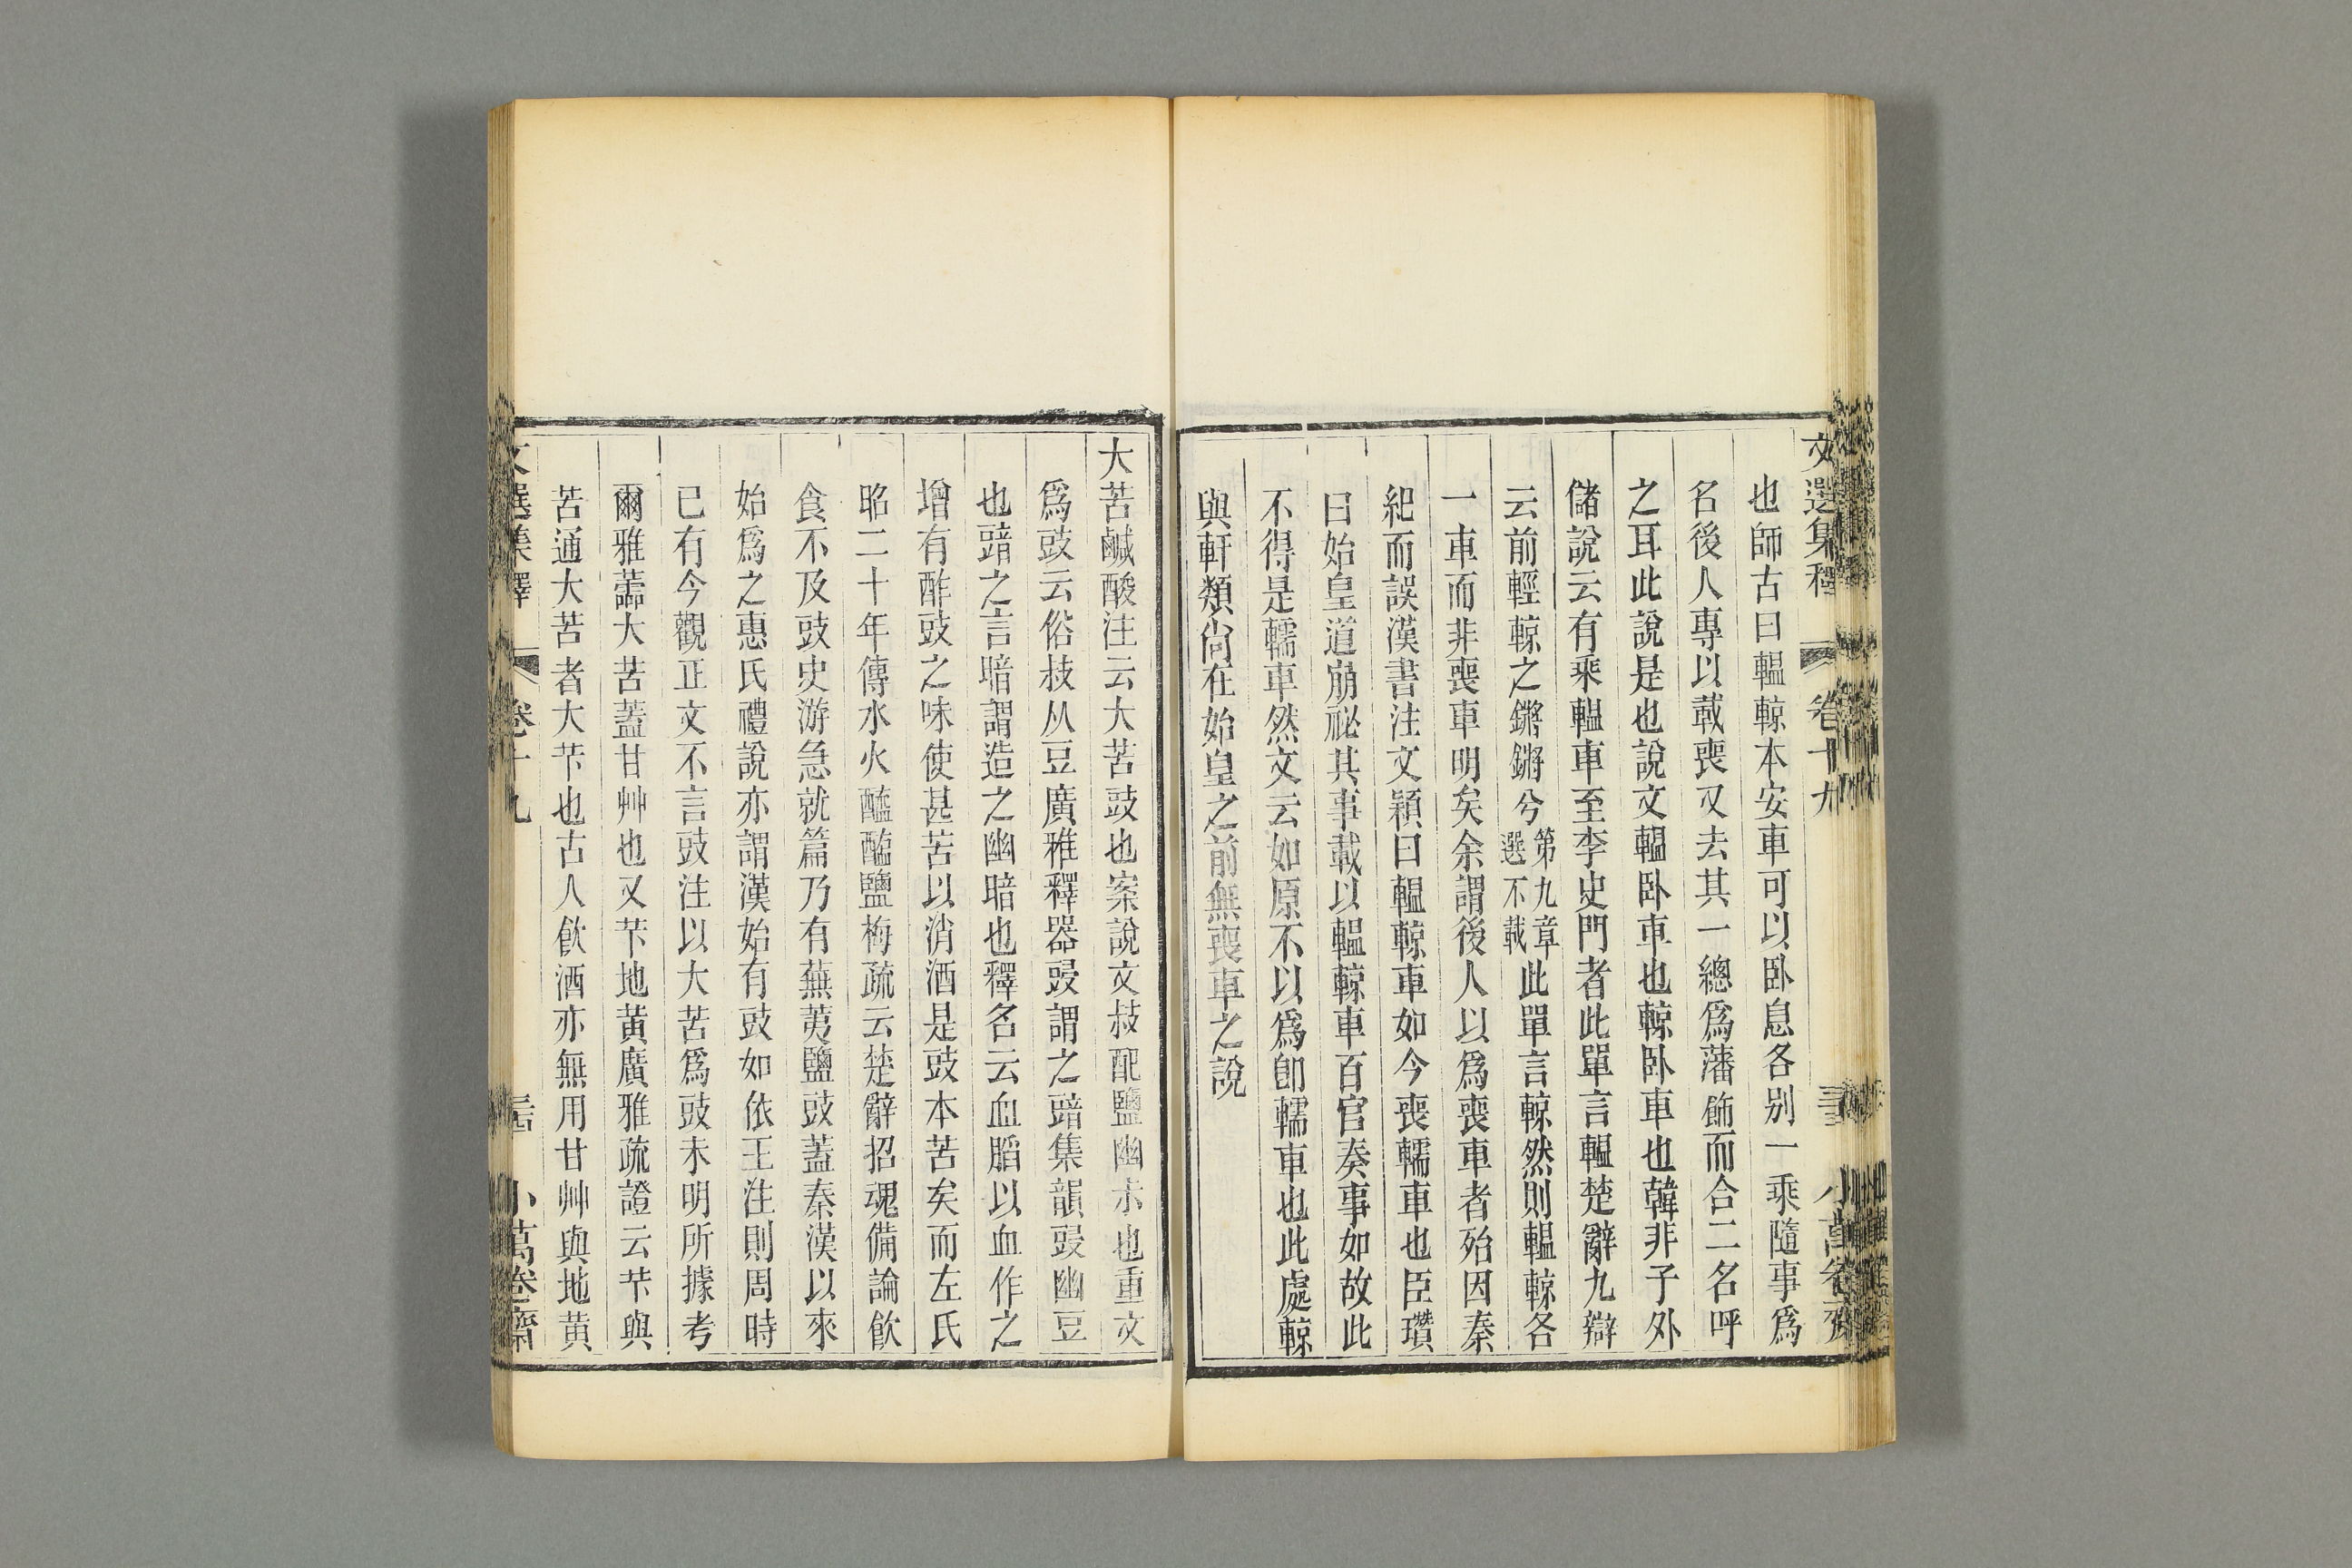 文選集釋 卷十九 小萬卷齋
也師古曰轀輬本安車可以卧息各别一乘隨事爲
名後人專以載喪又去其一總爲藩飾而合二名呼
之耳此說是也說文轀卧車也輬卧車也韓非子外
儲說云有乘轀車至李史門者此單言轀楚辭九辯
云前輕輬之鏘鏘兮第九章選不載此單言輬然則轀輬各
一車而非喪車明矣余謂後人以爲喪車者殆因秦
紀而誤漢書注文穎曰轀輬車如今喪轜車也臣瓚
曰始皇道崩祕其事載以轀輬車百官奏事如故此
不得是轜車然文云如原不以爲卽轜車也此處輬
與軒類尙在始皇之前無喪車之說
大苦鹹酸注云大苦豉也案說文敊配鹽幽尗也重文
爲豉云俗敊从豆廣雅釋器䜴謂之䜾集韻䜴幽豆
也䜾之言暗謂造之幽暗也釋名云血䐄以血作之
增有酢豉之味使甚苦以消酒是豉本苦矣而左氏
昭二十年傳水火醯醢鹽梅疏云楚辭招魂備論飲
食不及豉史游急就篇乃有蕪荑鹽豉蓋秦漢以來
始爲之惠氏禮說亦謂漢始有豉如依王注則周時
已有今觀正文不言豉注以大苦爲豉未明所據考
爾雅蘦大苦蓋甘艸也又芐地黃廣雅疏證云芐與
苦通大苦者大芐也古人飲酒亦無用甘艸與地黃
文選集釋 卷十九 小萬卷齋